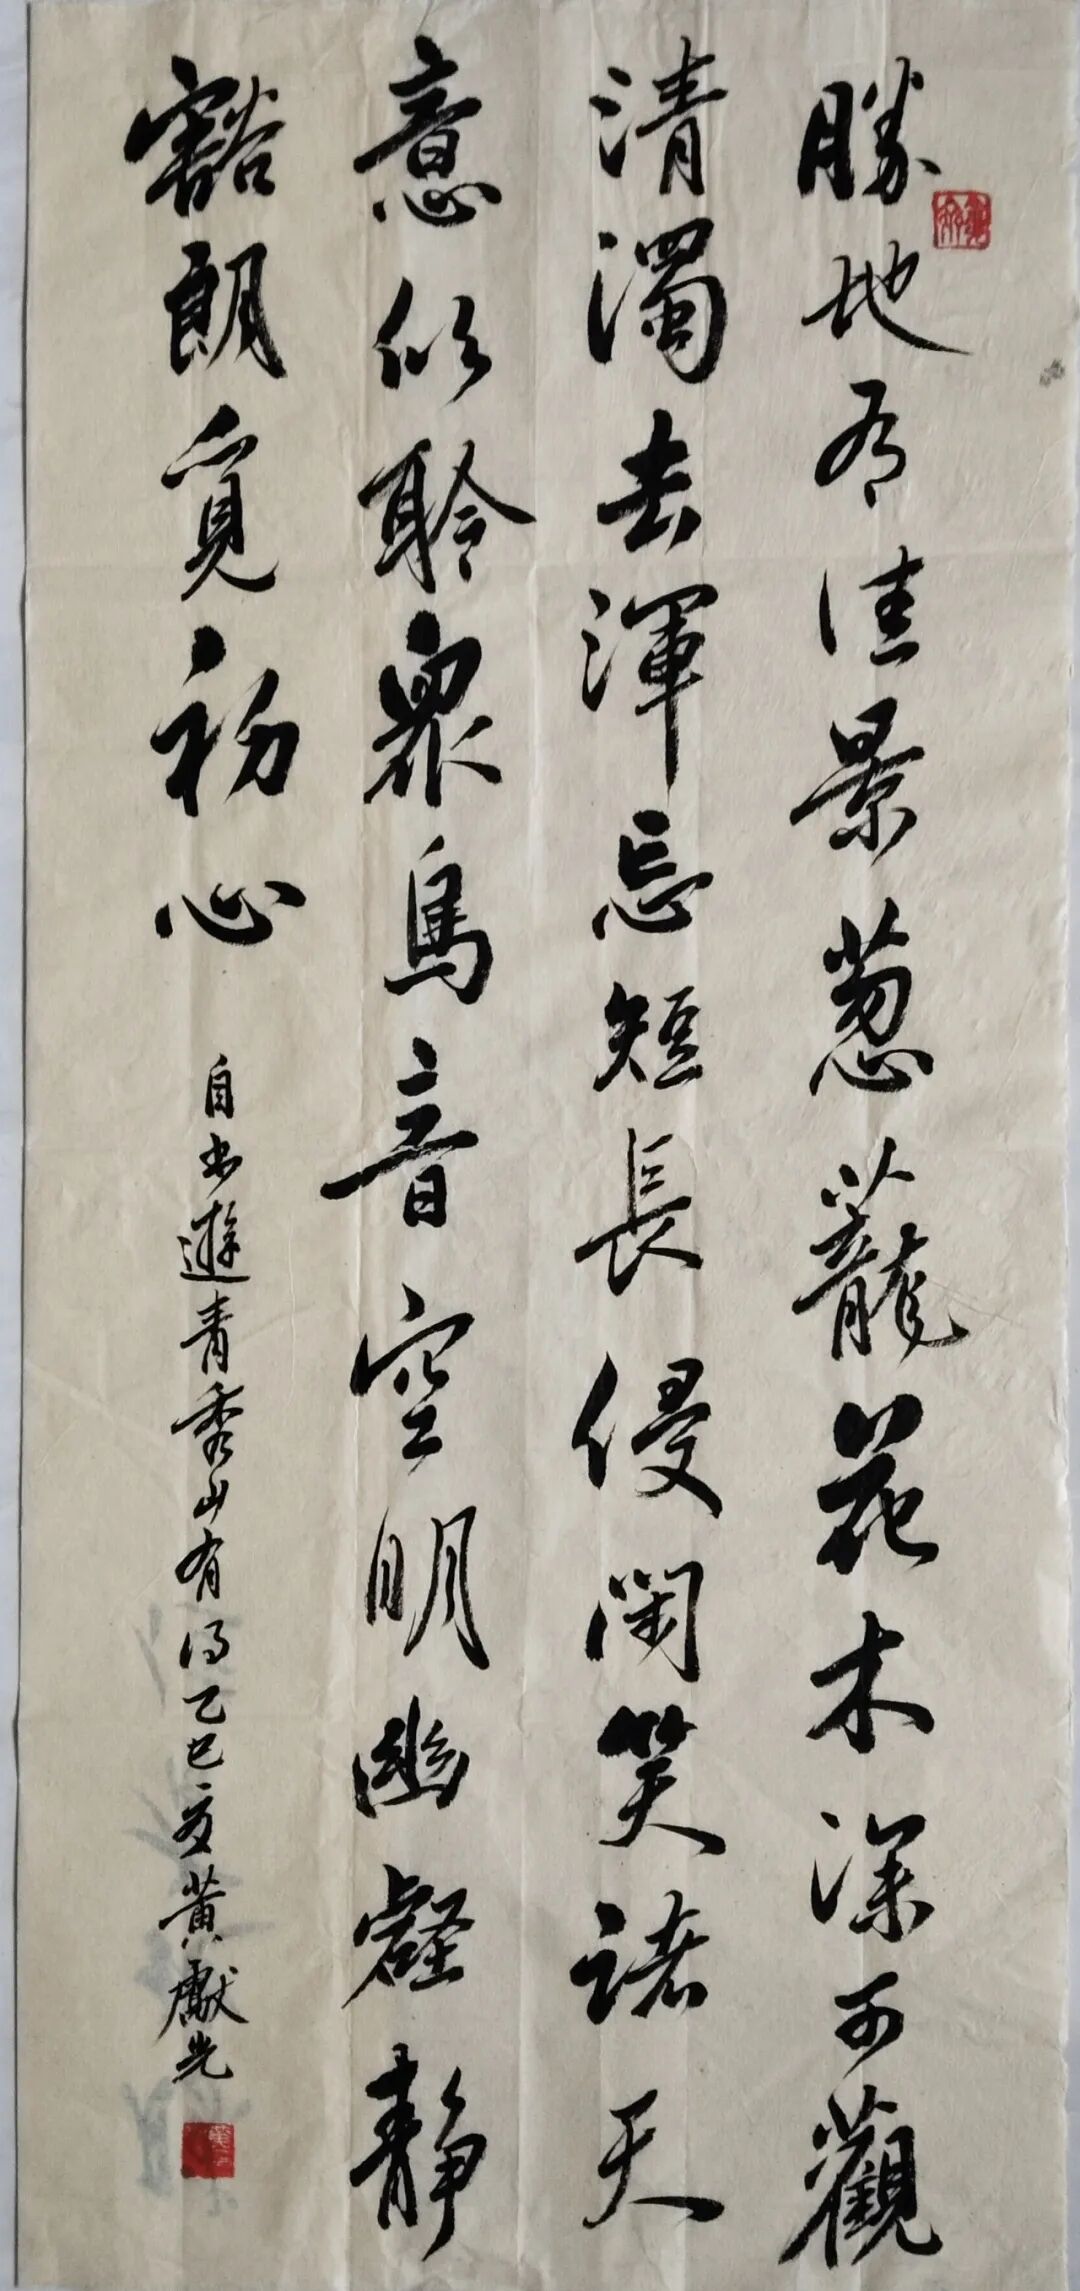 勝地有佳景葱蘢花木深可觀
清濁去渾忘短長侵闌笑諸天
意似聆衆鳥音空明幽壑靜
豁朗覓初心
自书遊青秀山有得乙巳夏黄獻光